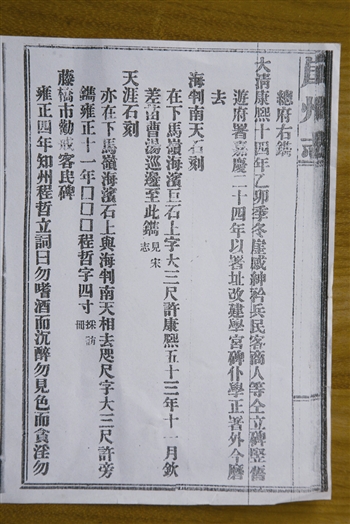 崖州志
總府右鐫
大清康熙十四年乙卯季冬崖感紳衿兵民客商人等仝立碑竪舊
遊府署嘉慶二十四年以署址改建學宮碑仆學正署外今磨
去
海判南天石刻
在下馬嶺海濱巨石上字大三尺許康熙五十三年十一月欽
差苗曹湯巡邊至此鐫 見宋志
天涯石刻
亦在下馬嶺海濱石上與海判南天相去咫尺字大三尺許旁
鐫雍正十一年口口口程哲字四寸 採訪冊
藤橋市勸戒客民碑
雍正四年知州程哲立詞曰勿嗜酒而沉醉勿見色而貪淫勿